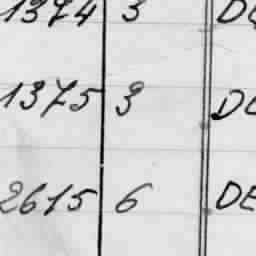 1374 3 DE
1375 3 DE
2615 6 DE